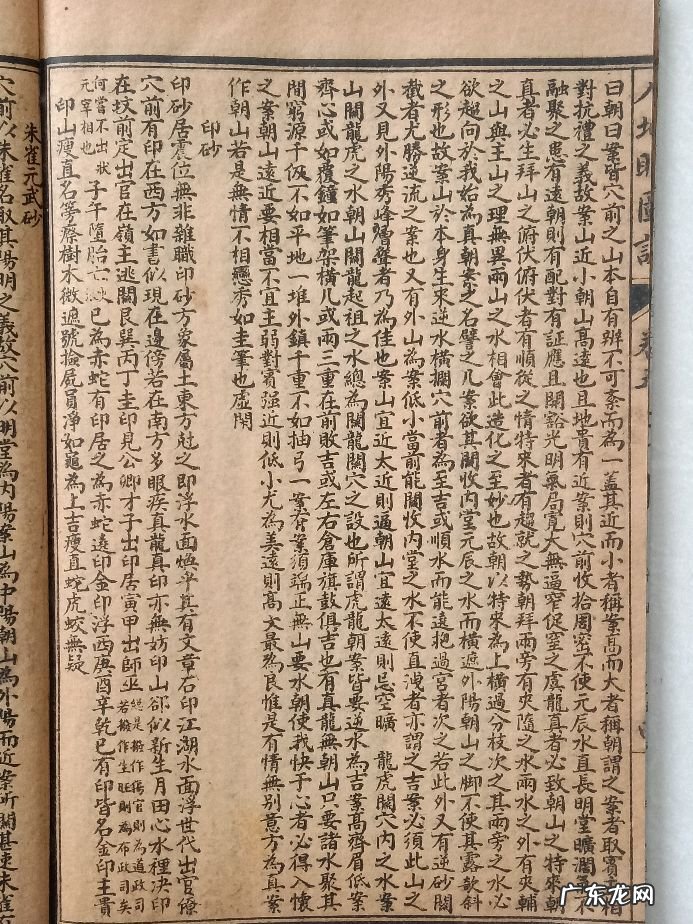 曰朝曰案皆穴前之山本自有辨不可紊而為一盖其近而小者稱案高而大者稱朝謂之案者取賓主相
對抗禮之義故案山近小朝山高遠也且地貴有近案則穴前收拾周密不使元辰水直長明堂曠濶不
融聚之患有遠朝則有配對有証應且開豁光明氣局寬大無逼窄促窒之虞龍直者必致朝山之特來朝
真者必生拜山之俯伏俯伏者有順從之情特來者有趨就之勢朝拜兩旁有夾隨之水兩水之外有夾輔
之山與主山之理無異兩山之水相會此造化之至妙也故朝以特來為上橫過分枝次之其兩旁之水必
欲趨向於我始為真朝案之名譬之几案欲其關收內堂元辰之水而橫遮外陽朝山之脚不使其露欹斜
之形也故案山於本身生來逆水橫攔穴前者為至吉或順水而能遠抱過宮者次之若此外又有逆砂關
截者尤勝逆流之案也又有外山為案低小當前能關收內堂之水不使直洩者亦謂之吉案必須此山之
外又見外陽秀峰層聳者乃為佳也案山宜近太近則逼朝山宜遠太遠則忌空曠 龍虎關穴內之水案
山關龍虎之水朝山關龍起祖之水總為關龍關穴之設也所謂虎龍朝案皆要逆水為吉案高齊眉低案
齊心或如覆鐘如筆架橫几或兩三重在前敗吉或左右倉庫旗鼓俱吉也有真龍無朝山只要諸水聚其
間窮源千伋不如平地一堆外鎮千重不如抽弓一案夲案須端正無山要水朝使我快于心者必得入懷
之案朝山遠近要相當不宜主弱對賓强近則低小尤為美遠則高大最為良惟是有情無別意方為真案
作朝山若是無情不相戀秀如圭筆也虛閑
印砂
印砂居震位無非雜職印砂方象屬土東方尅之即浮水面煥乎真有文章石印江湖水面浮世代出官僚
穴前有印在西方如書似現在邊傍若在南方多眼疾真龍真印亦無妨印山卻似新生月田心水裡决印
在坟前定出官在嶺主逃關艮巽丙丁圭印見公卿才子出印居寅甲出師巫
總是撥作楊官則為道政司
若撥作生旺則為布政司矣
何嘗不出狀
元宰相也
子午墮胎亡
巳為赤蛇有印居之為赤蛇遶印金印浮西庚酉辛乾巳有印皆名金印主貴
印山瘦直名勞瘵樹木微遮號撿屍員淨如龜為上吉瘦直蛇虎蛟無疑
朱雀元武砂
穴前以朱雀名取其陽明之義故穴前以明堂為內陽案山為中陽朝山為外陽而近案所關甚速朱雀
人地眼圖說
广东龙网